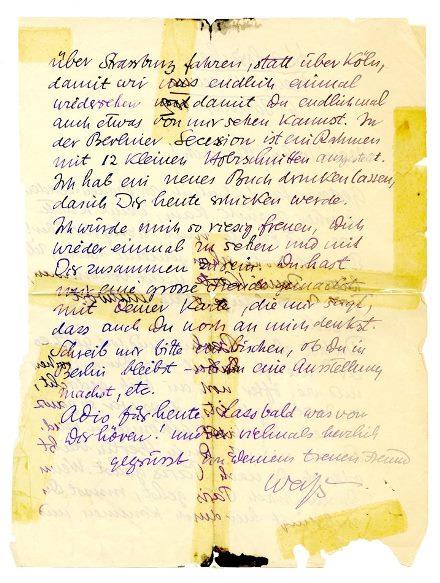 über Strassburg fahren, statt über Köln,
damit wir uns endlich einmal
wiedersehen und damit Du endlich mal
auch etwas von mir sehen kannst. In
der Berliner Secession ist ein Rahmen
mit 12 kleinen Holzschnitten ausgestellt.
Ich hab ein neues Buch drucken lassen,
das ich Dir heute schicken werde.
Ich würde mich so riesig freuen, Dich
wieder einmal zu sehen und mit
Dir zusammen zu sein! Du hast
mir eine grosse Freude gemacht
mit Deiner Karte, die mir zeigt,
dass auch Du noch an mich denkst.
Schreib mir bitte ein bischen, ob Du in
Berlin bleibst – eine Ausstellung
machst, etc.
Adio für heute! Lass bald was von
Dir hören! und sei vielmals herzlich
gegrüsst von Deinem treuen Freund
Weiß